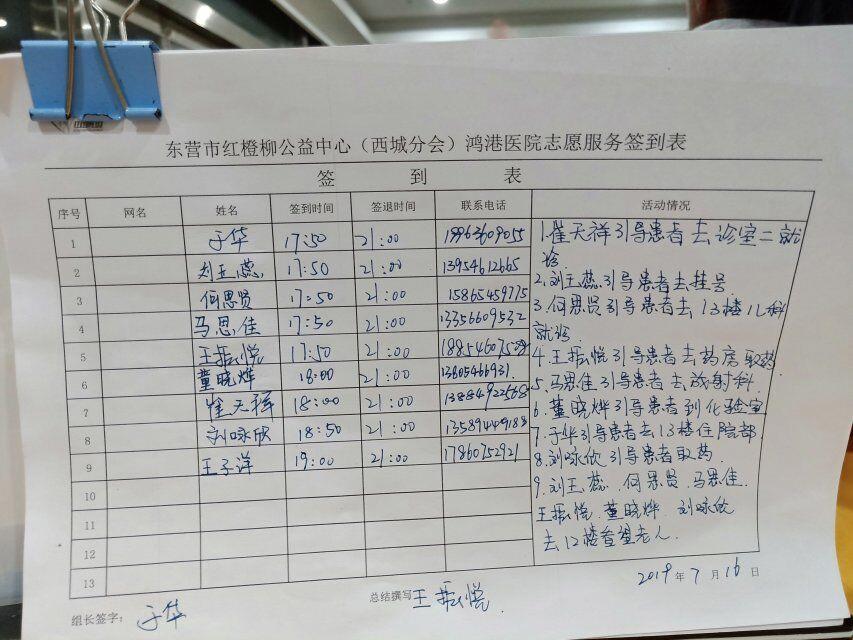 东营市红橙柳公益中心（西城分会）鸿港医院志愿服务签到表
签 到 表
序号 网名 姓名 签到时间 签退时间 联系电话 活动情况
1 于华 17:50 21:00 19963609055
2 刘玉蕊 17:50 21:00 13954612665
3 何思贤 17:50 21:00 15865459775
4 马思佳 17:50 21:00 13356609532
5 王振悦 17:50 21:00
6 董晓烨 18:00 21:00
7 崔天祥 18:00 21:00 13884922568
8 刘咏欣 18:50 21:00 13589449188
9 王子洋 19:00 21:00 17860752921
10
11
12
13
1.崔天祥引导患者去诊室二就
诊
2.刘玉蕊引导患者去挂号
3.何思贤引导患者去13楼儿科
就诊
4.王振悦引导患者去药房取药
5.马思佳引导患者去放射科.
6.董晓烨引导患者到化验室
7.于华引导患者去13楼住院部.
8.刘咏欣引导患者取药.
9.刘玉蕊.何思贤.马思佳.
王振悦.董晓烨.刘咏欣
去12楼看望老人.
2019年7月16日
组长签字：于华 总结撰写 王振悦.